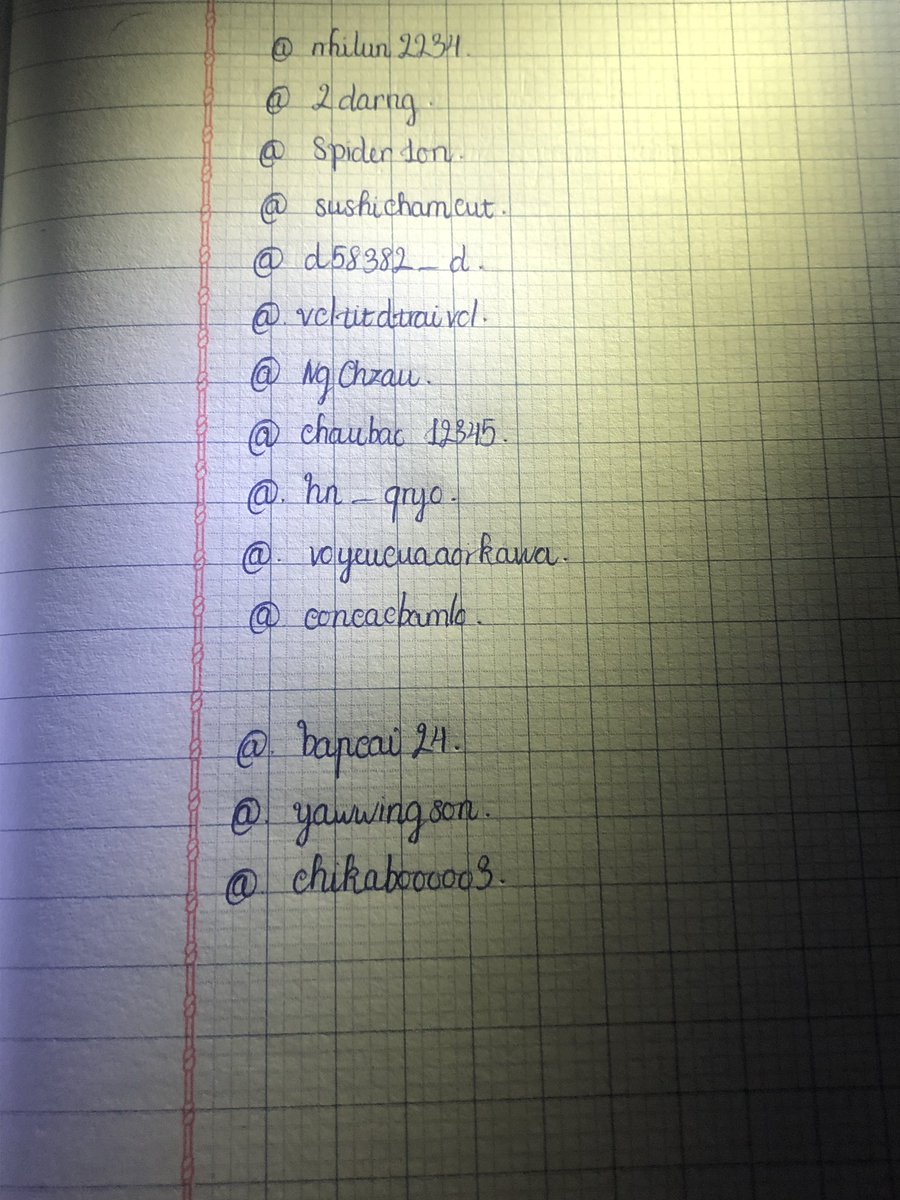 @ nhilun2234.
@ 2darng.
@ Spider1on.
@ sushichamcut.
@ d58382_d.
@. vcltitdtraivcl.
@ NgChzau.
@ chaubac 12345.
@. hn_qnyo.
@. voyeucuaaorkawa.
@ concacbamlo.
@. bapcai24.
@. yawwingson.
@. chikabooooo3.